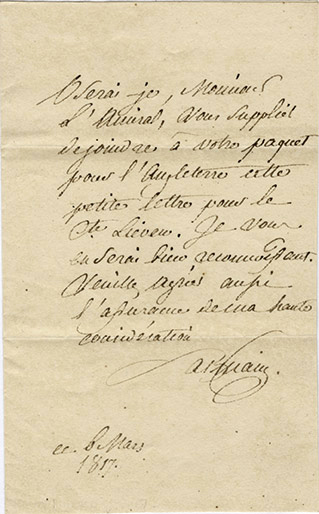 Oserai je, Monsieur
L'Amiral, Vous supplier
de joindre à votre paquet
pour l'Angleterre cette
petite lettre pour le
Cte Lieven. Je vous
en serai bien reconnoissant.
Veuillez agréer aussi
l'assurance de ma haute
considération
ce 6 Mars
1817.